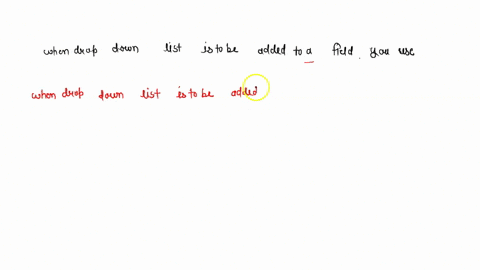 when drop down list is to be added to a field, you use
when drop down list is to be added